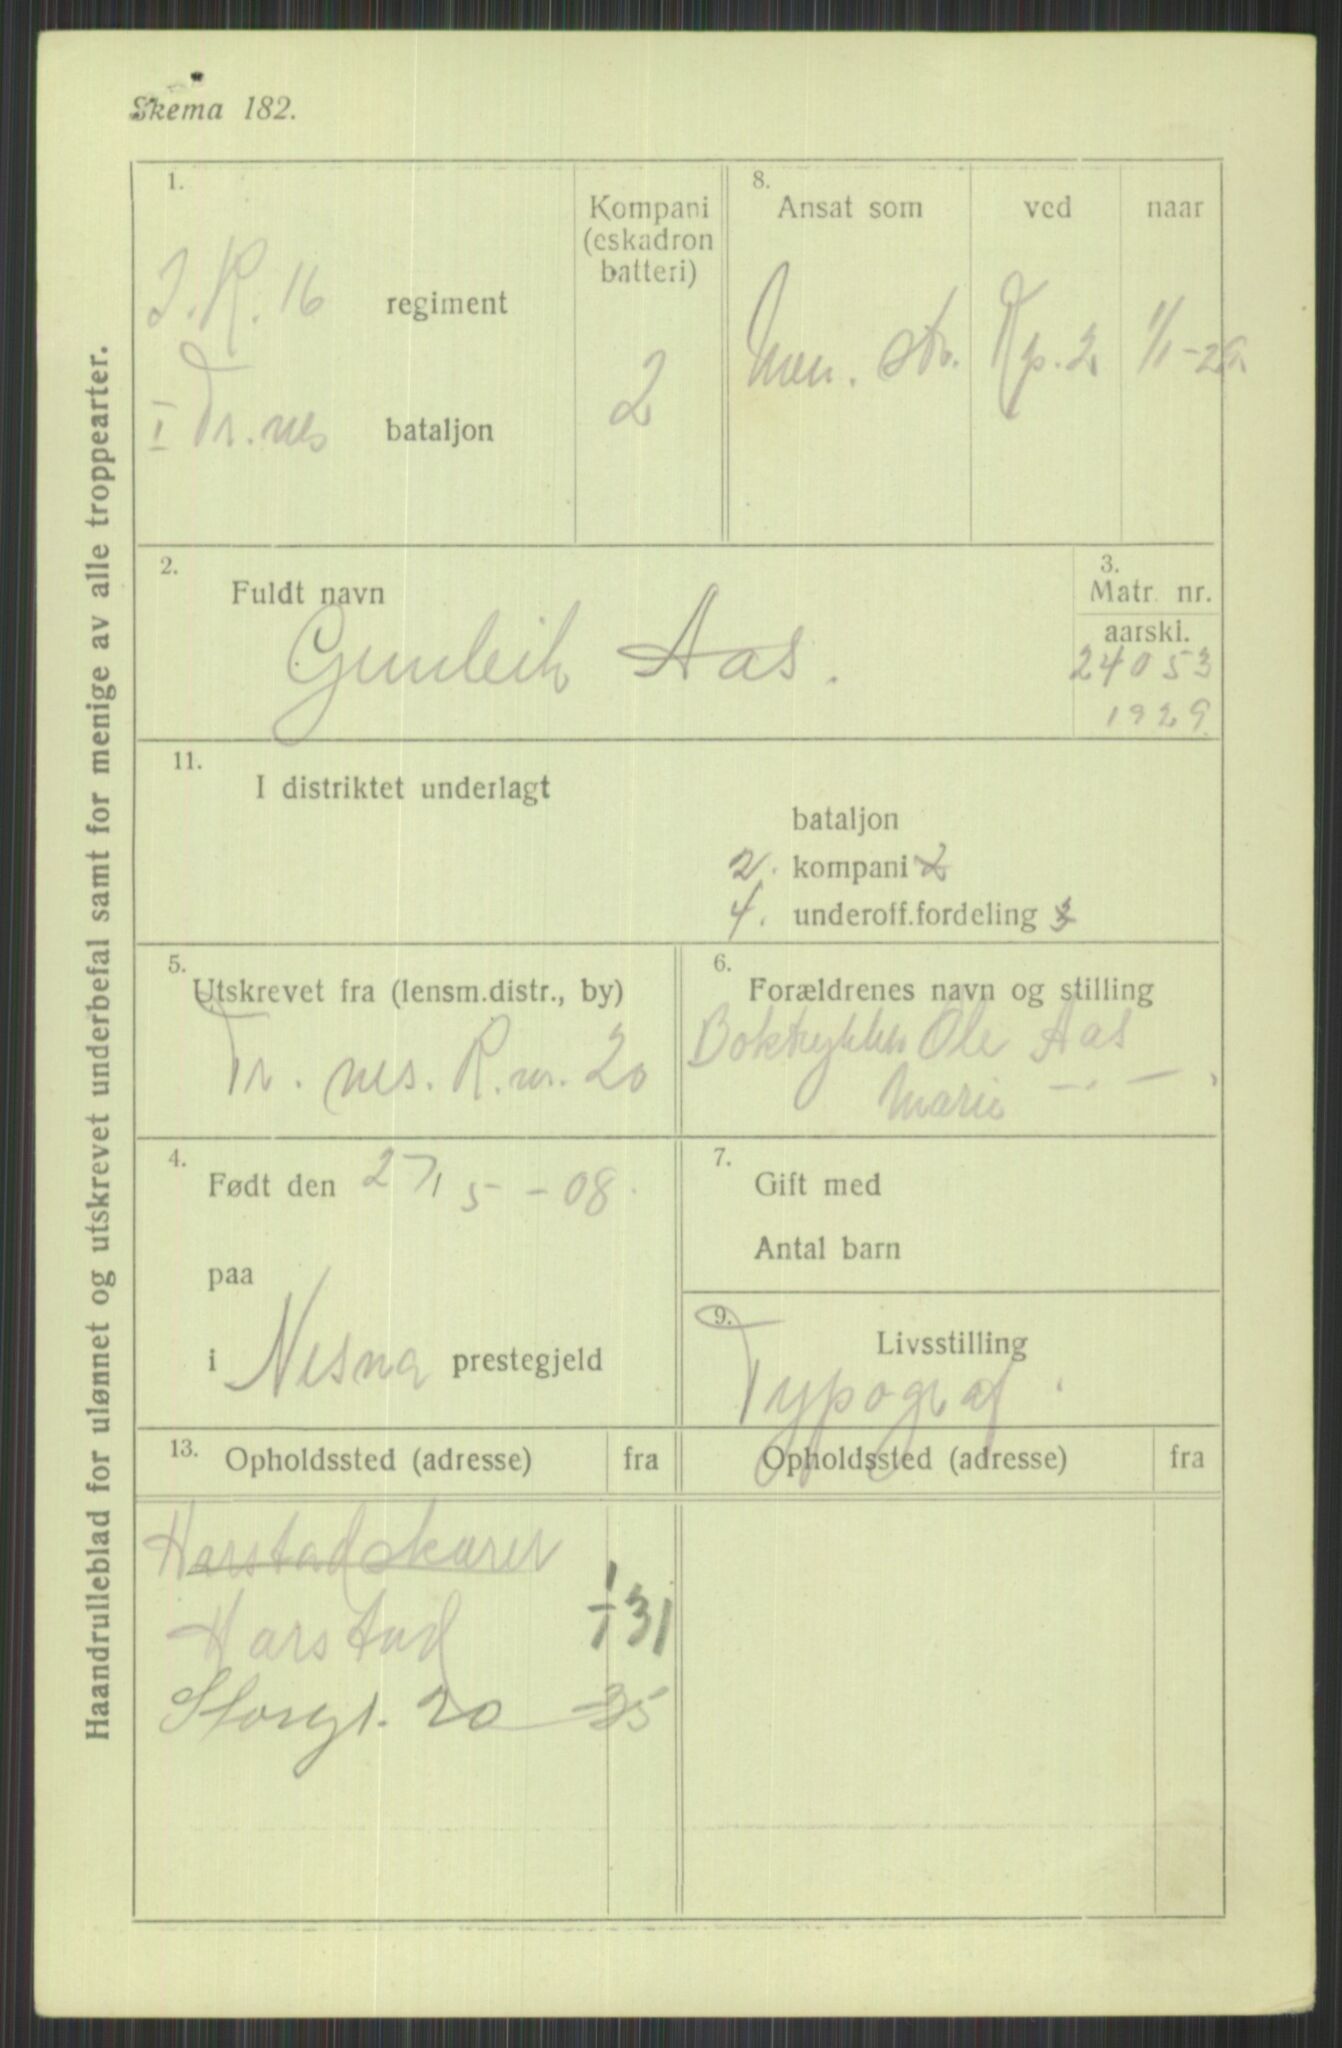 Skema 182.
Haandrulleblad for ulønnet og utskrevet underbefal samt for menige av alle troppearter.
1.
I.R. 16 regiment
I Tr.nes bataljon
Kompani
(eskadron
batteri)
2
8.
Ansat som ved naar
Men. str. Kp. 2 1/1-29
2.
Fuldt navn
Gunleik Aas.
3.
Matr. nr.
aarskl.
24053
1929
11.
I distriktet underlagt
bataljon
2. kompani 2
4. underoff.fordeling 3
5.
Utskrevet fra (lensm.distr., by)
Tr.nes. R.nr. 20
6.
Forældrenes navn og stilling
Boktrykker Ole Aas
Marie —"—
4.
Født den 27/5-08.
paa
i Nesna prestegjeld
7.
Gift med
Antal barn
9.
Livsstilling
Typograf.
13. Opholdssted (adresse) fra
Opholdssted (adresse) fra
Harstad
1/1 31
Storgt. 20 -35